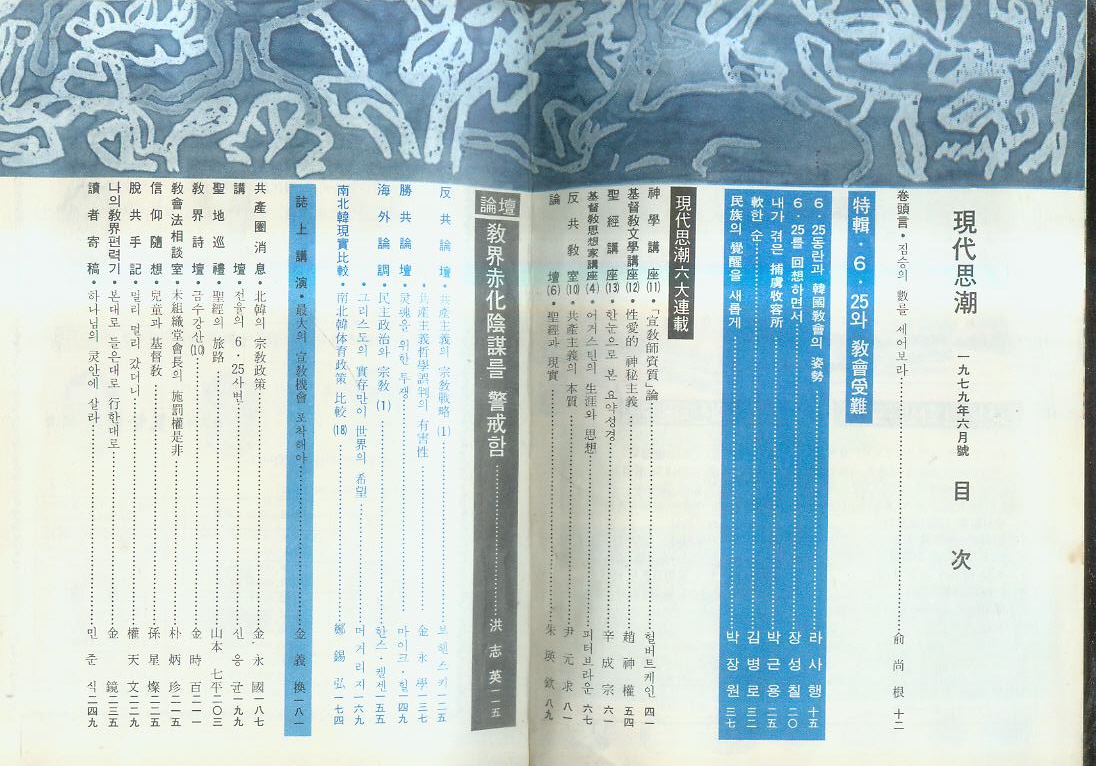 現代思潮 一九七九年六月號 目次
巻頭言・짐승의 數를 세어보라 兪尚根 十二
特輯·6·25와 敎會受難
6·25동란과 韓國敎會의 姿勢 라사행 十五
6·25를 回想하면서 장성칠 二〇
내가 겪은 捕虜收容所 박근용 二五
軟한 순 김병로 三二
民族의 覺醒을 새롭게 박장원 三七
現代思潮六大連載
神學講座(11)·「宣敎師資質」論 헐버트케인 四一
基督敎文學講座(12)·性愛的 神秘主義 趙神權 五四
聖經講座(13)·한눈으로 본 요약성경 辛成宗 六一
基督敎思想家講座(4)·어거스틴의 生涯와 思想 피터브라운 六七
反共敎室(10)·共產主義의 本質 尹元求 八一
論壇(6)·聖經과 現實 朱瑛欽 八九
論壇 敎界赤化陰謀를 警戒함 洪志英 一一五
反共論壇·共產主義의 宗敎戰略(1) 브렌스키 一二五
·共產主義哲學誤判의 有害性 金永學 一三七
勝共論壇·灵魂을 위한 투쟁 마이크·힐 一四九
海外論調·民主政治와 宗敎(1) 한스·켈젠 一五五
·그리스도의 實存만이 世界의 希望 머거리지 一六九
南北韓現實比較·南北韓体育政策 比較(18) 鄭錫弘 一七四
誌上講演·最大의 宣敎機會 포착해야 金義換 一八一
共產圈消息·北韓의 宗敎政策 金永國 一八七
講壇·전율의 6·25사변 신응균 一九九
聖地巡禮·聖經의 旅路 山本七平 二〇三
敎界詩壇·금수강산(10) 金時百 二一一
敎會法相談室·未組織堂會長의 施罰權是非 朴炳珍 二一五
信仰隨想·兒童과 基督敎 孫星燦 二二五
脫共手記·멀리 멀리 갔더니 權天文 二二九
나의敎界편력기·본대로 들은대로 行한대로 金鏡 二三五
讀者寄稿·하나님의 灵안에 살라 민준식 二四九